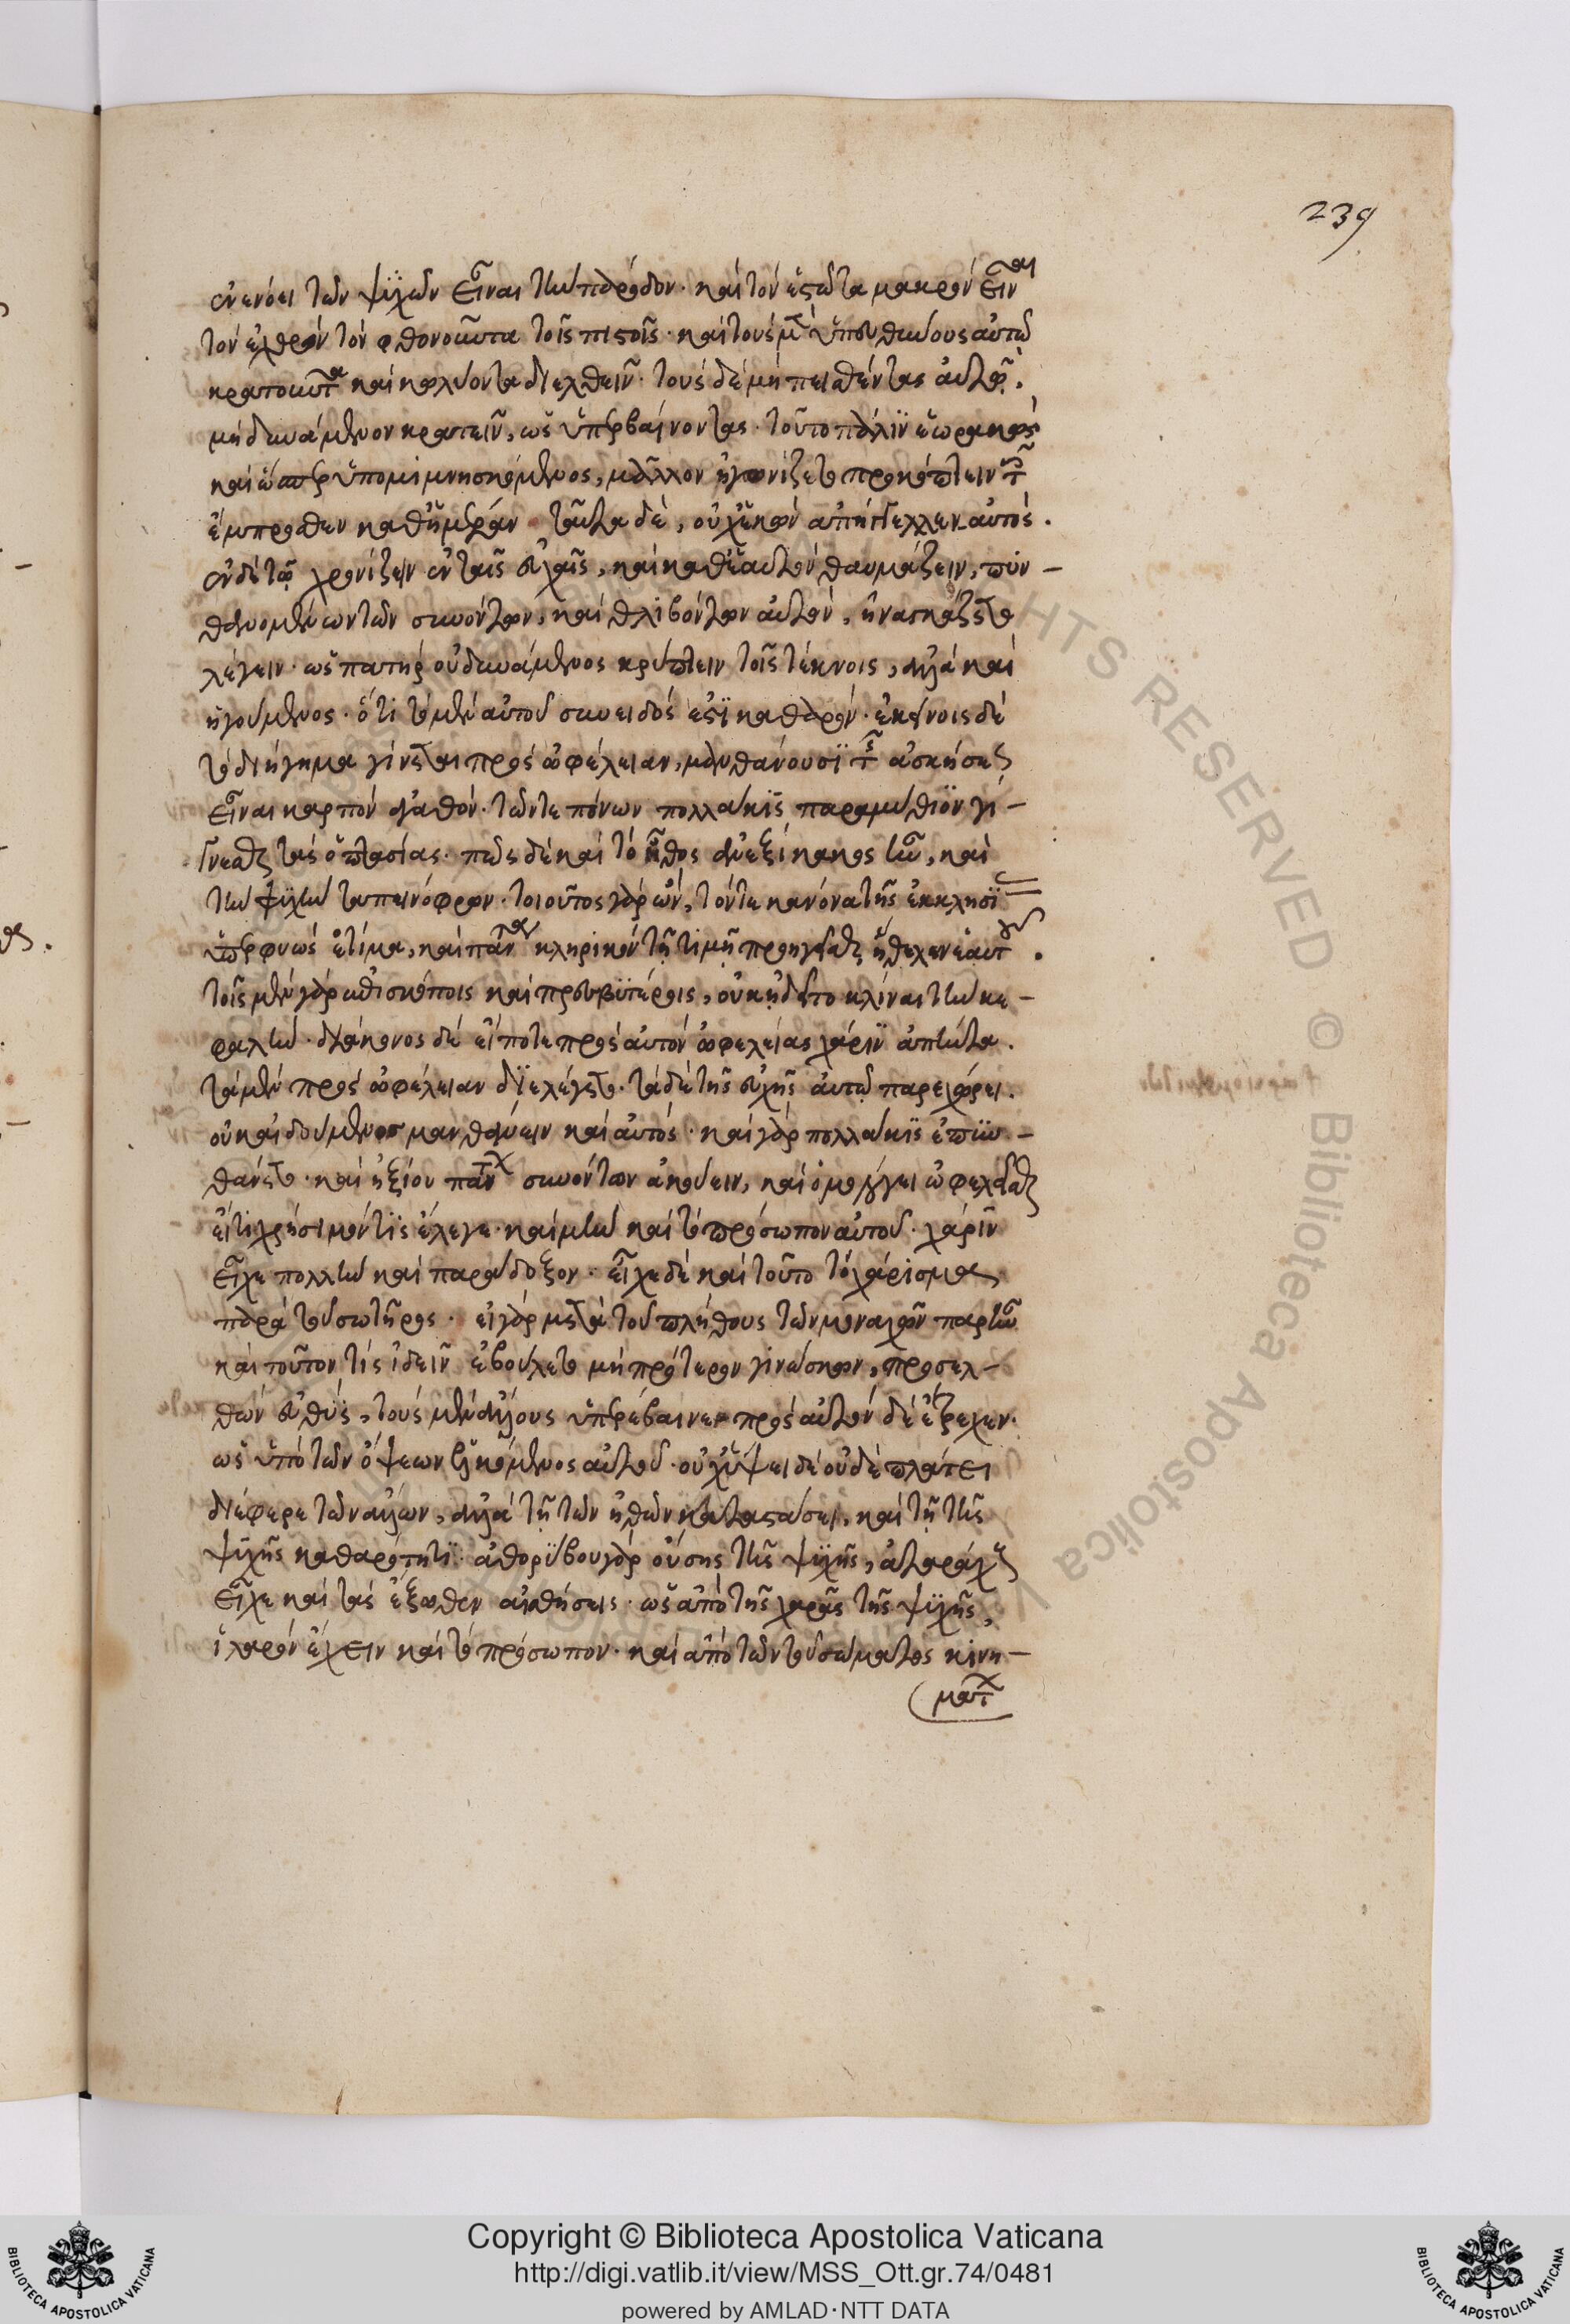 239
ἐνενόει τῶν ψυχῶν εἶναι τὴν πάροδον· καὶ τὸν ἑστῶτα μακρὸν εἶναι
τὸν ἐχθρὸν τὸν φθονοῦντα τοῖς πιστοῖς· καὶ τοὺς μὲν ὑπευθύνους αὐτῷ
κρατοῦντα καὶ κωλύοντα διελθεῖν· τοὺς δὲ μὴ πεισθέντας αὐτῷ,
μὴ δυνάμενον κρατεῖν, ὡς ὑπερβαίνοντας· τοῦτο πάλιν ἑωρακὼς
καὶ ὥσπερ ὑπομιμνησκόμενος, μᾶλλον ἠγωνίζετο προκόπτειν τοῖς
ἔμπροσθεν καθημέραν· ταῦτα δὲ, οὐχ ἑκὼν ἀπήγγελλεν αὐτός.
ἐν δὲ τῷ χρονίζειν ἐν ταῖς εὐχαῖς, καὶ καθ ἑαυτὸν θαυμάζειν, πυν-
θανομένων τῶν συνόντων, καὶ θλιβόντων αὐτὸν, ἠναγκάζετο
λέγειν· ὡς πατὴρ οὐ δυνάμενος κρύπτειν τοῖς τέκνοις, ἀλλὰ καὶ
ἡγούμενος· ὅτι τὸ μὲν αὐτοῦ συνειδὸς ἐστὶ καθαρὸν· ἐκείνοις δὲ
τὸ διήγημα γίνεται πρὸς ὠφέλειαν, μανθάνουσι τῆς ἀσκήσεως
εἶναι καρπὸν ἀγαθὸν· τῶν τε πόνων πολλακις παραμυθίον γί-
γνεσθαι τὰς ὀπτασίας· πῶς δὲ καὶ τὸ ἦθος ἀνεξίκακος ἦν, καὶ
τὴν ψυχὴν ταπεινόφρων· τοιοῦτος γὰρ ὢν, τόν τε κανόνα τῆς ἐκκλησίας
ὑπερφυῶς ἐτίμα, καὶ πάντα κληρικὸν τῇ τιμῇ προηγεῖσθαι ἤθελεν ἑαυτοῦ.
τοῖς μὲν γὰρ ἐπισκόποις καὶ πρεσβυτέροις, οὐκ ᾐδεῖτο κλίναι τὴν κε-
φαλὴν· διάκονος δὲ εἴποτε πρὸς αὐτὸν ὠφελείας χάριν ἀπήντα.
τὰ μὲν πρὸς ὠφέλειαν διελέγετο· τὰ δὲ τῆς εὐχῆς αὐτῷ παρεχώρει.
οὐκ αἰδούμενος μανθάνειν καὶ αὐτός· καὶ γὰρ πολλακις ἐπυν-
θάνετο· καὶ ἠξίου παντων συνόντων ἀκούειν, καὶ ὡμολόγει ὠφελεῖσθαι
εἴ τι χρήσιμόν τις ἔλεγε· καὶ μὴν καὶ τὸ πρόσωπον αὐτοῦ· χάριν
εἶχε πολλὴν καὶ παράδοξον· εἶχε δὲ καὶ τοῦτο τὸ χάρισμα
παρὰ τοῦ σωτῆρος· εἰ γὰρ μετὰ τοῦ πλήθους τῶν μοναχῶν παρῆν
καὶ τοῦτον τίς ἰδεῖν ἐβούλετο μὴ πρότερον γινώσκων, προσελ-
θὼν εὐθὺς, τοὺς μὲν ἄλλους ὑπερέβαινε· πρὸς αὐτὸν δὲ ἔτρεχεν·
ὡς ὑπὸ τῶν ὄψεων ἑλκόμενος αὐτοῦ· οὐχ ὕψει δὲ οὐδὲ πλάτει
διέφερε τῶν ἄλλων, ἀλλὰ τῇ τῶν ἠθῶν καταστάσει, καὶ τῇ τῆς
ψυχῆς καθαρότητι· ἀθορύβου γὰρ οὔσης τῆς ψυχῆς, ἀταράχους
εἶχε καὶ τὰς ἔξωθεν αἰσθήσεις· ὡς ἀπὸ τῆς χαρᾶς τῆς ψυχῆς,
ἱλαρὸν ἔχειν καὶ τὸ πρόσωπον· καὶ ἀπὸ τῶν τοῦ σώματος κινη-
μάτων
RIGHTS RESERVED © Biblioteca Apostolica Vaticana
Copyright © Biblioteca Apostolica Vaticana
http://digi.vatlib.it/view/MSS_Ott.gr.74/0481
powered by AMLAD·NTT DATA
BIBLIOTECA APOSTOLICA VATICANA
BIBLIOTECA APOSTOLICA VATICANA